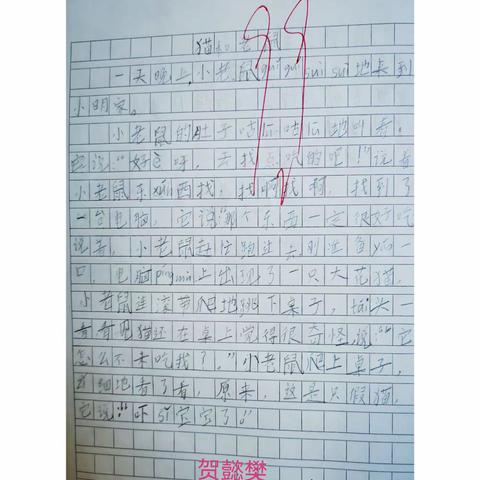 猫和老鼠
一天晚上,小老鼠guǐ guǐ suì suì地来到
小明家。
小老鼠的肚子咕瓜咕瓜地叫着,
它说:“好饿呀,去找点吃的吧!”说着
小老鼠东xún西找,找啊找啊,找到了
一台电脑,它说“那个东西一定很好吃
说着,小老鼠赶忙跑过去刚准备yǎo一
口,电脑píng mù上出现了一只大花猫,
小老鼠连滚带爬地跳下桌子,tái头一
看看见猫还在桌上觉得很奇怪,说:“它
怎么不来吃我?”小老鼠爬上桌子,
仔细地看了看,原来,这是只假猫,
它说:“吓sǐ宝宝了。”
贺懿樊